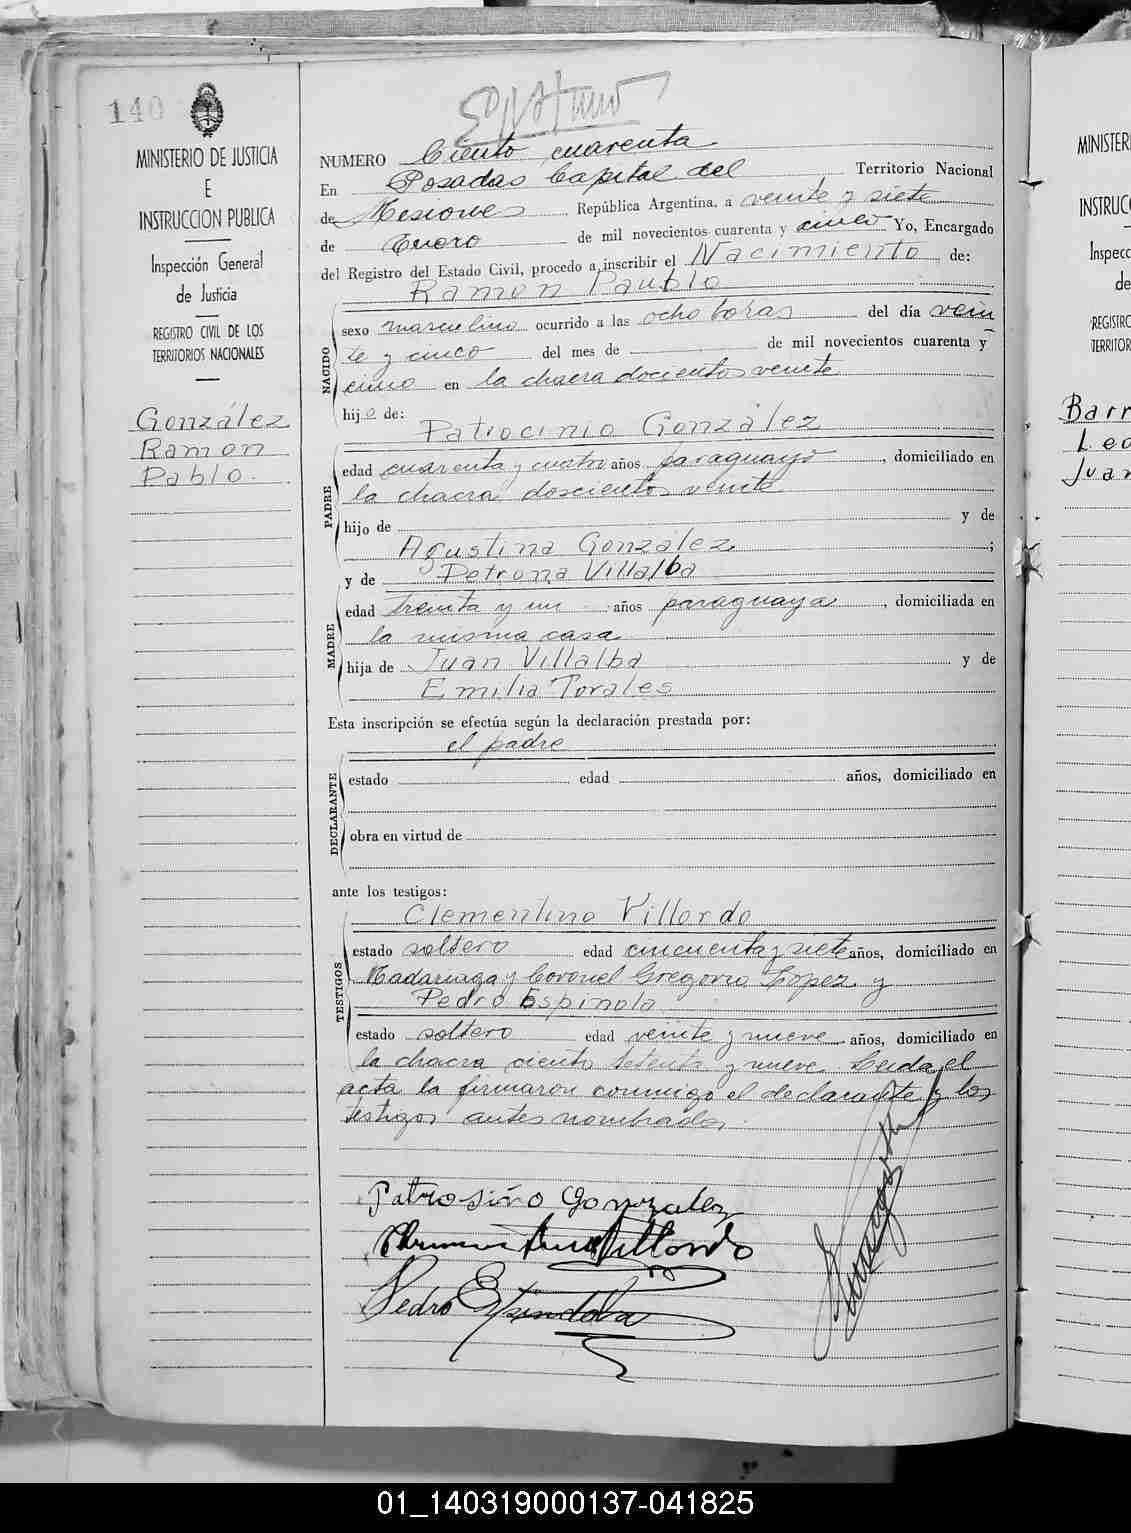 140
MINISTERIO DE JUSTICIA
E
INSTRUCCION PUBLICA
Inspección General
de Justicia
REGISTRO CIVIL DE LOS
TERRITORIOS NACIONALES
González
Ramon
Pablo.
NUMERO Ciento cuarenta
En Posadas Capital del Territorio Nacional
de Misiones República Argentina, a veinte y siete
de Enero de mil novecientos cuarenta y cinco Yo, Encargado
del Registro del Estado Civil, procedo a inscribir el Nacimiento de:
Ramon Paublo
NACIDO
sexo masculino ocurrido a las ocho horas del día vein-
te y cinco del mes de de mil novecientos cuarenta y
cinco en la chacra docientos veinte
hijo de:
Patrocinio González
PADRE
edad cuarenta y cuatro años paraguayo, domiciliado en
la chacra doscientos veinte
hijo de y de
Agustina González ;
y de Petrona Villalba
MADRE
edad treinta y un años paraguaya, domiciliada en
la misma casa
hija de Juan Villalba y de
Emilia Torales
Esta inscripción se efectúa según la declaración prestada por:
el padre
DECLARANTE
estado edad años, domiciliado en
obra en virtud de
ante los testigos:
Clementino Villordo
TESTIGOS
estado soltero edad cincuenta y siete años, domiciliado en
Madariaga y Coronel Gregorio Lopez y
Pedro Espinola
estado soltero edad veinte y nueve años, domiciliado en
la chacra ciento setenta y nueve. Leida el
acta la firmaron conmigo el declarante y los
testigos antes nombrados.
Patrosiño Gonzalez
Villordo
Pedro Espindola
MINISTER
INSTRUC
Inspecc
de
REGISTRO
TERRITOR
Barr
Leo
Juan
01_140319000137-041825